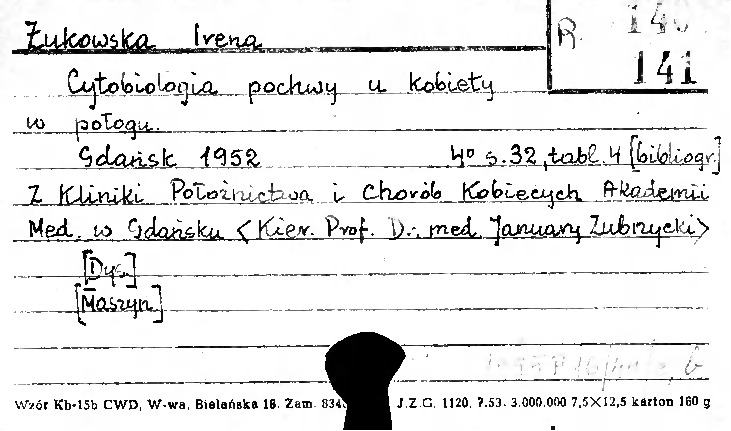 Żukowska Irena
R. 140
141
Cytobiologia pochwy u kobiety
w połogu.
Gdańsk 1952 4° s. 32, tabl. 4 [bibliogr.]
Z Kliniki Położnictwa i Chorób Kobiecych Akademii
Med. w Gdańsku <Kier. Prof. Dr. med. January Zubrzycki>
[Dys.]
[Maszyn.]
Wzór Kb-15b CWD, W-wa, Bielańska 18. Zam. J.Z.G. 1120. 7.53. 3.000.000 7,5×12,5 karton 160 g